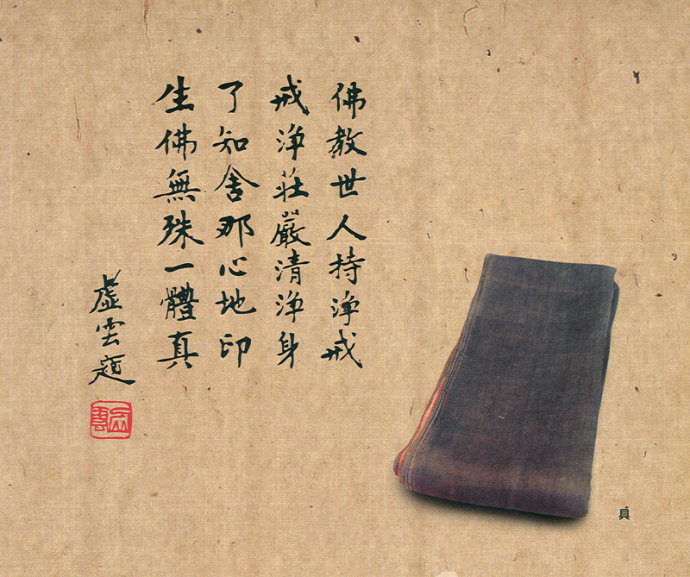 佛教世人持淨戒
戒淨莊嚴清淨身
了知舍那心地印
生佛無殊一體真
虛雲題
虛雲
具